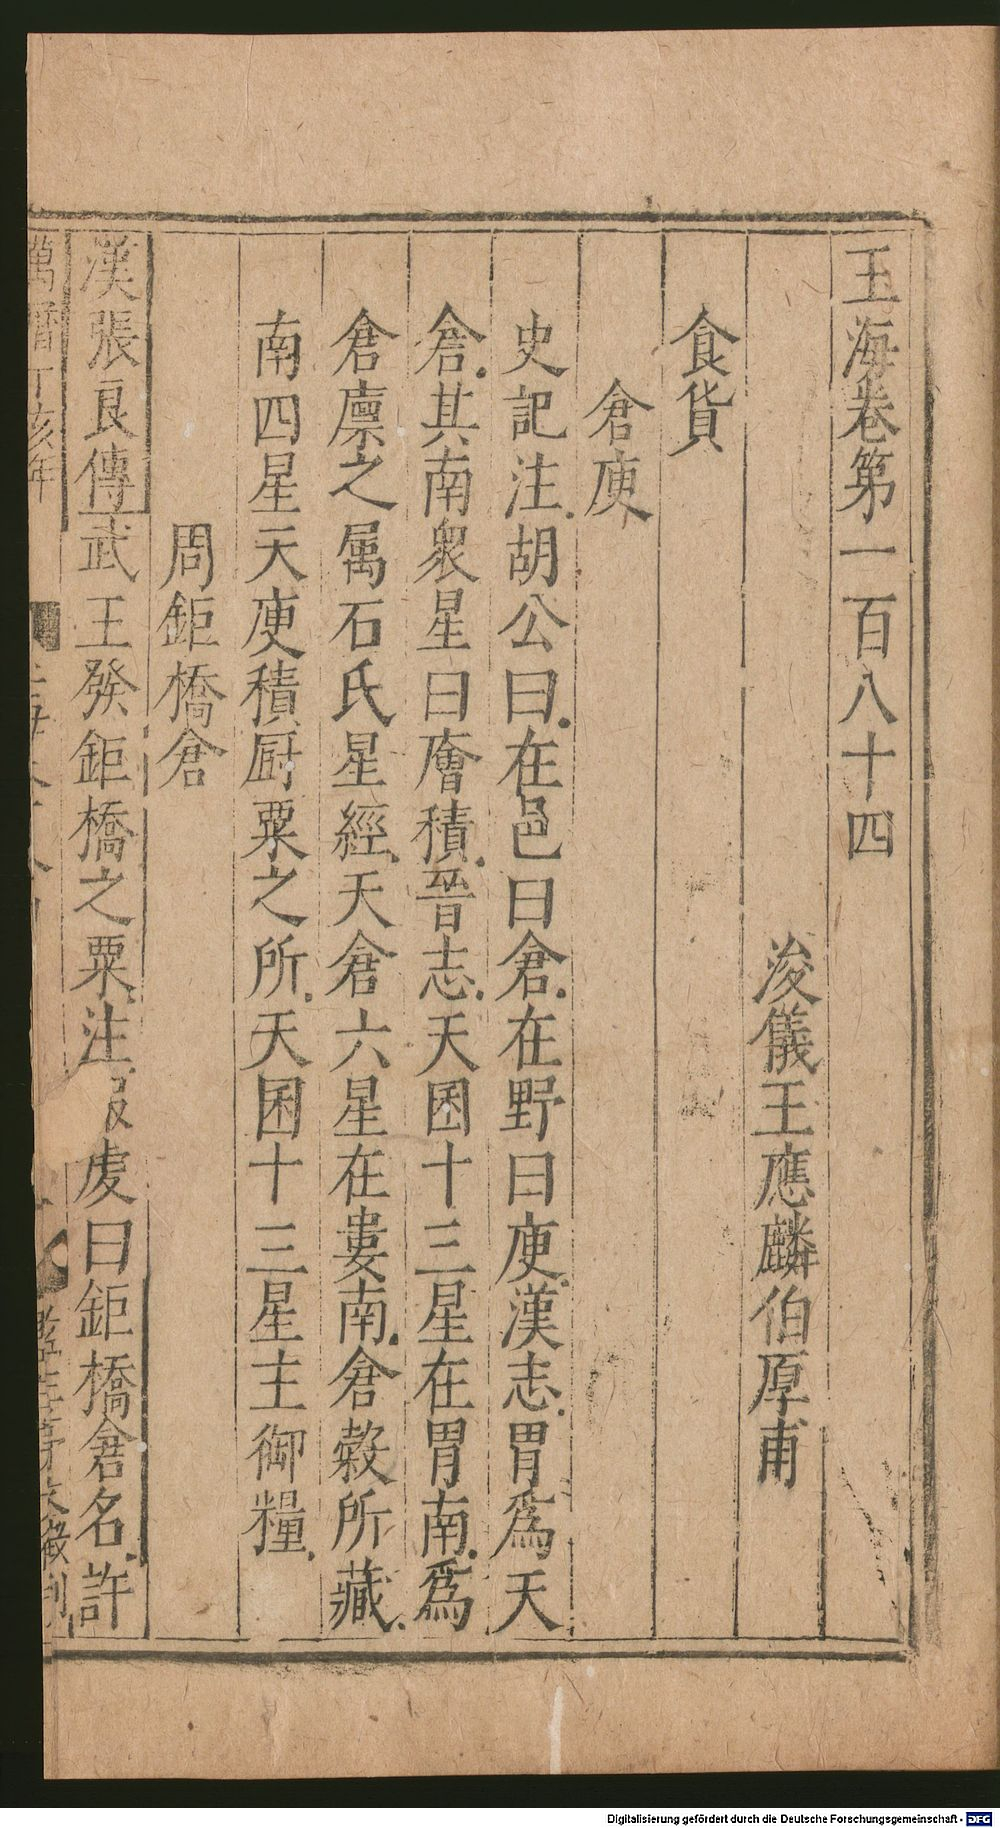 玉海卷第一百八十四
浚儀王應麟伯厚甫
食貨
倉庾
史記注胡公曰在邑曰倉在野曰庾漢志胃爲天
倉其南衆星曰廥積晉志天囷十三星在胃南爲
倉廩之屬石氏星經天倉六星在婁南倉榖所藏
南四星天庾積厨粟之所天囷十三星主御糧
周鉅橋倉
漢張良傳武王發鉅橋之粟注服虔曰鉅橋倉名許
萬曆丁亥年
Digitalisierung gefördert durch die Deutsche Forschungsgemeinschaft - DFG